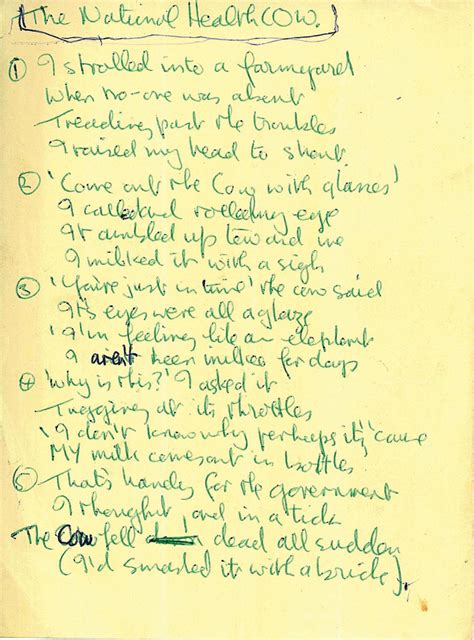 The National Health COW.
① I strolled into a farmyard
When no-one was about
Treading past the troubles
I raised my head to shout.
② 'Come out the Cow with glasses'
I called and rolled my eye
It ambled up toward me
I milked it with a sigh
③ 'You're just in time' the cow said
It's eyes were all aglaze
'I'm feeling like an elephant
I aren't been milked for days
④ 'Why is this?' I asked it
Tugging at its throttles
'I don't know why perhaps it's 'cause
MY milk comes out in bottles
⑤ That's handy for the government
I thought, and in a tick
The Cow fell dead all sudden
(I'd smashed it with a brick).